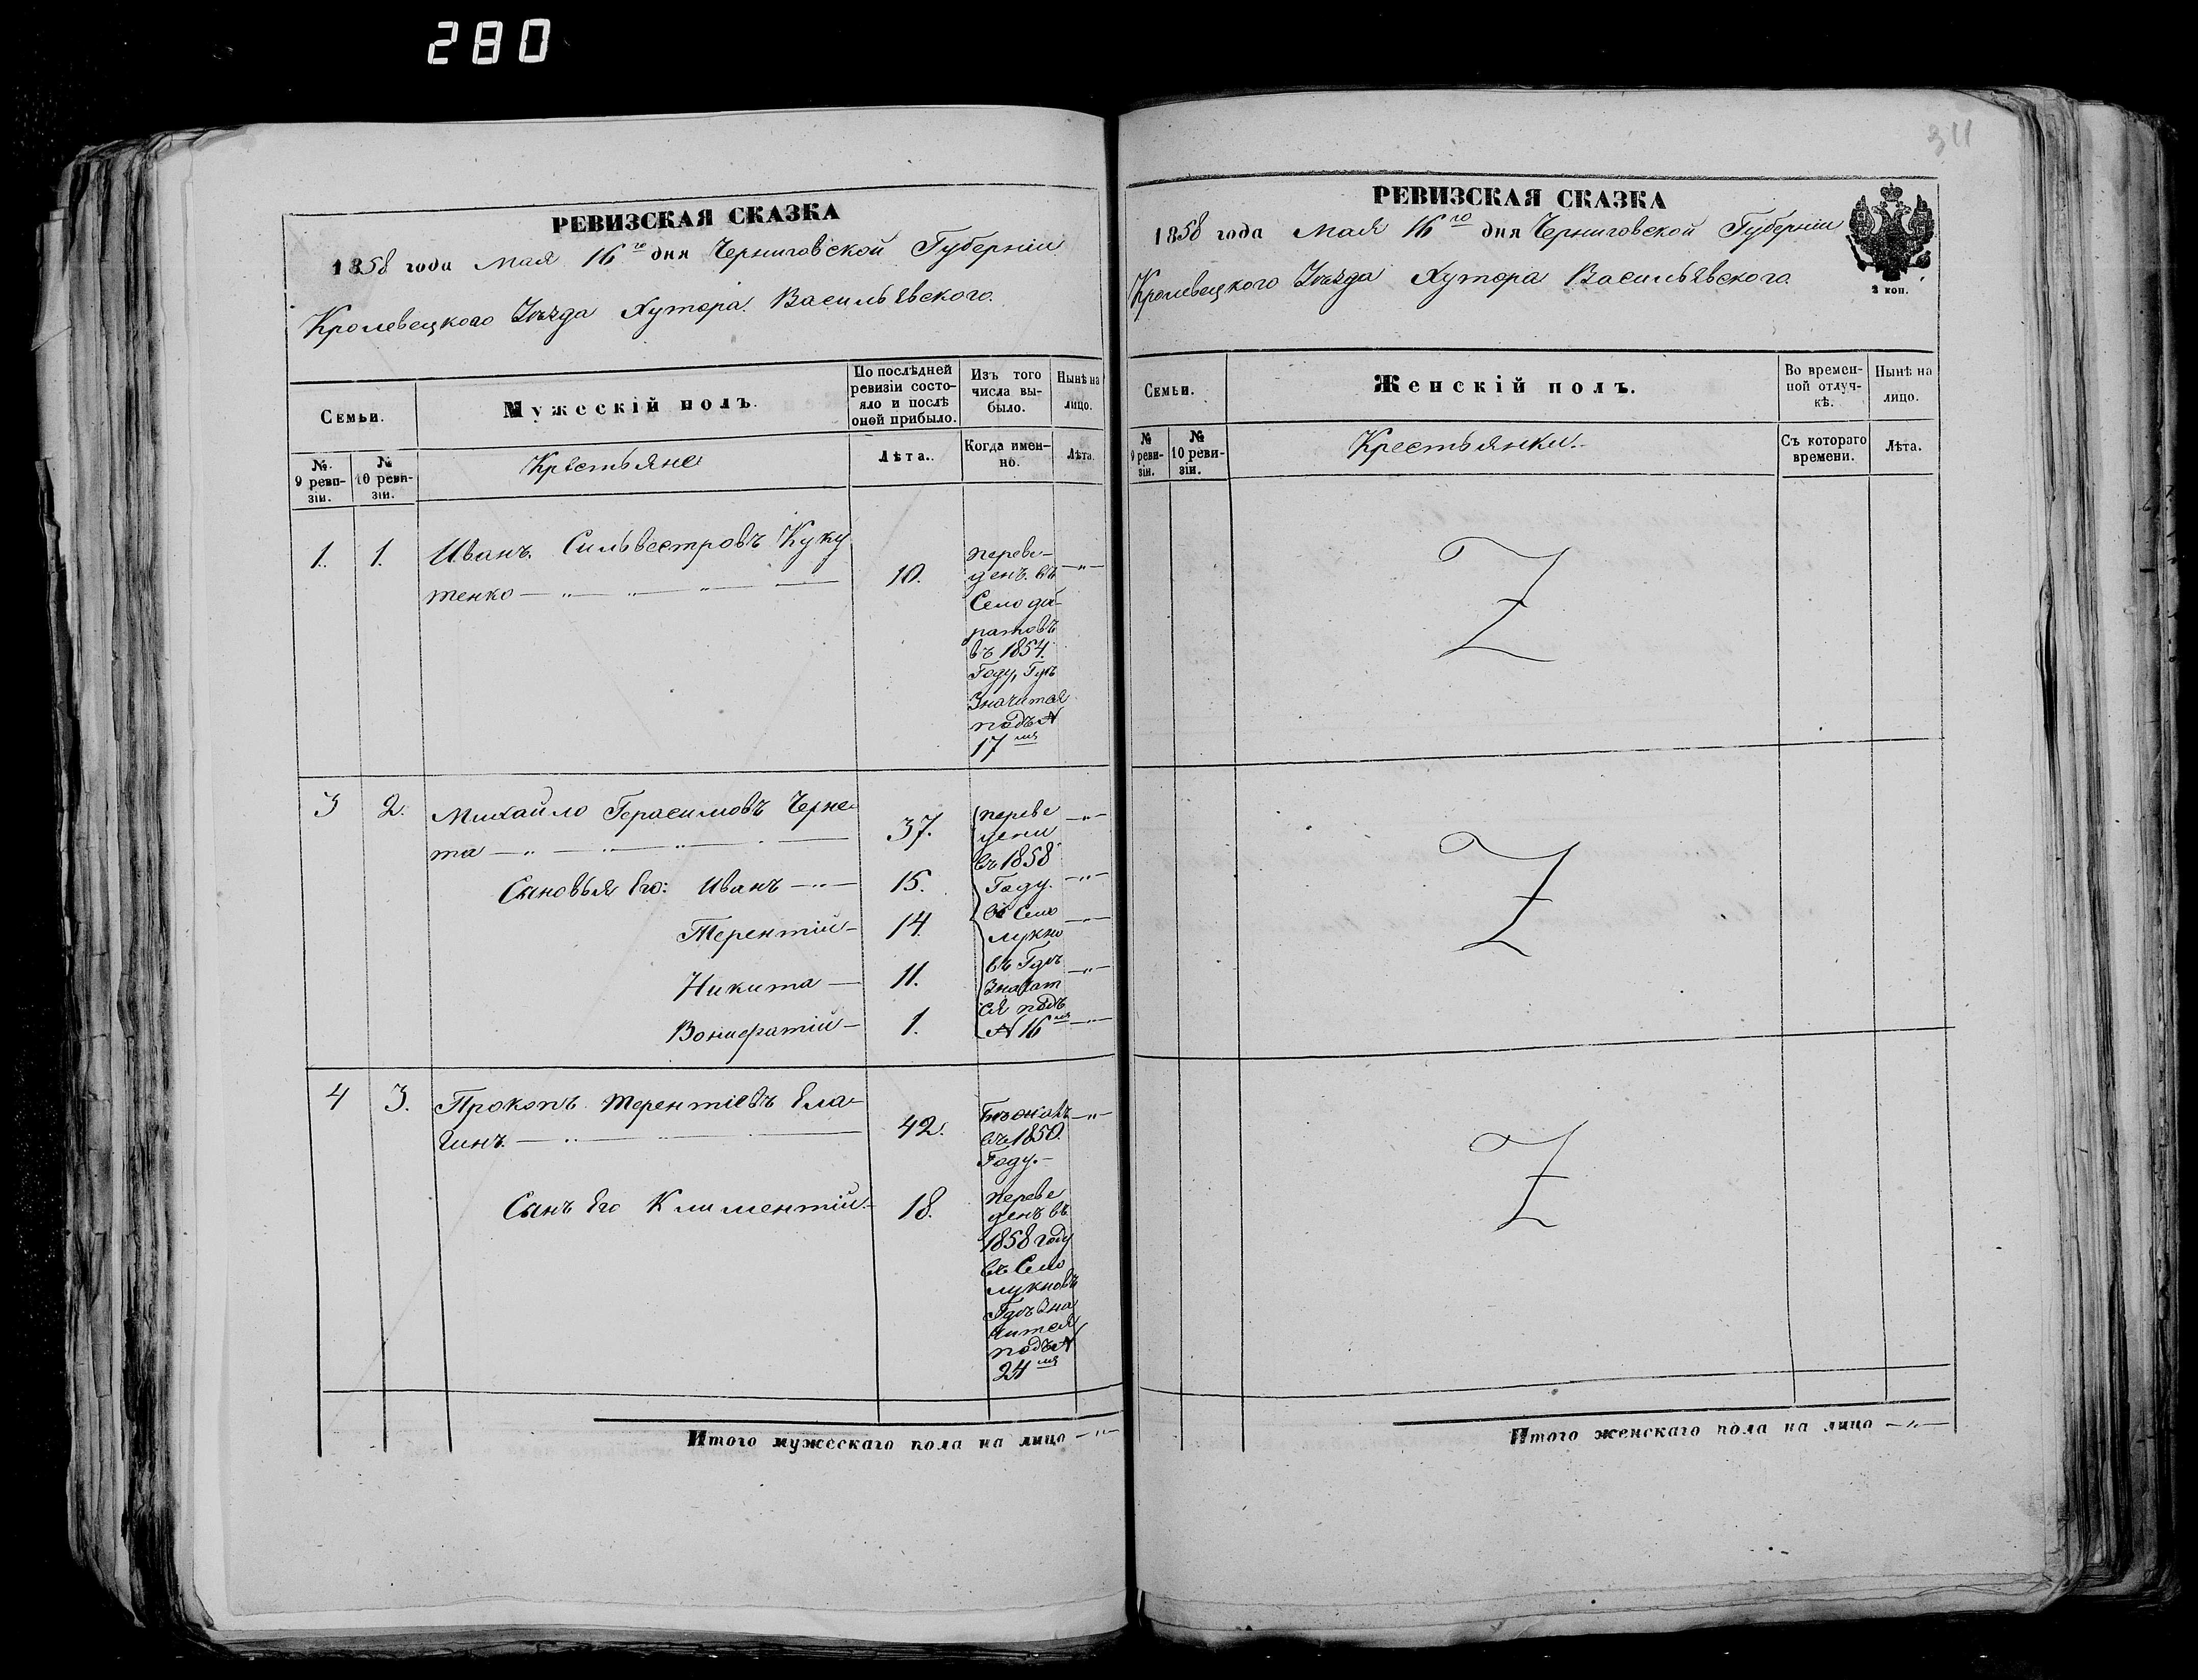 280
РЕВИЗСКАЯ СКАЗКА
1858 года Мая 16го дня Черниговской Губерніи
Кролевецкого Уѣзда Хутора Васильевского.
Семьи.
Мужескій полъ.
По послѣдней
ревизіи состо-
яло и послѣ
оной прибыло.
Изъ того
числа вы-
было.
Нынѣ на
лицо.
№
9 реви-
зіи.
№
10 реви-
зіи.
Крестьяне
Лѣта.
Когда имен-
но.
Лѣта.
1. 1. Иванъ Сильвестровъ Куку
тенко 10.
переве-
денъ въ
Село
въ 1854.
Году, Гдѣ
Значится
подъ №
17мъ
3 2. Михайло Герасимовъ Черне
та 37.
Сыновья Его: Иванъ 15.
Терентій 14.
Никита 11.
1.
переве
дени
въ 1858
Году.
въ Село
лукно
въ Гдѣ
Значат
ся подъ
№ 16мъ
4 3. Прокопъ Терентіевъ Ела
гинъ. 42.
въ 1850.
Году.
Сынъ Его Климентій 18.
переве
денъ въ
1858 году
въ Село
лукновъ
Гдѣ Зна
чится
подъ №
24мъ
Итого мужескаго пола на лицо
311
РЕВИЗСКАЯ СКАЗКА
1858 года Мая 16го дня Черниговской Губерніи
Кролевецкого Уѣзда Хутора Васильевского.
3 коп.
Семьи.
Женскій полъ.
Во времен-
ной отлуч-
кѣ.
Нынѣ на
лицо.
№
9 реви-
зіи.
№
10 реви-
зіи.
Крестьянки.
Съ котораго
времени.
Лѣта.
Z
Z
Z
Итого женскаго пола на лицо